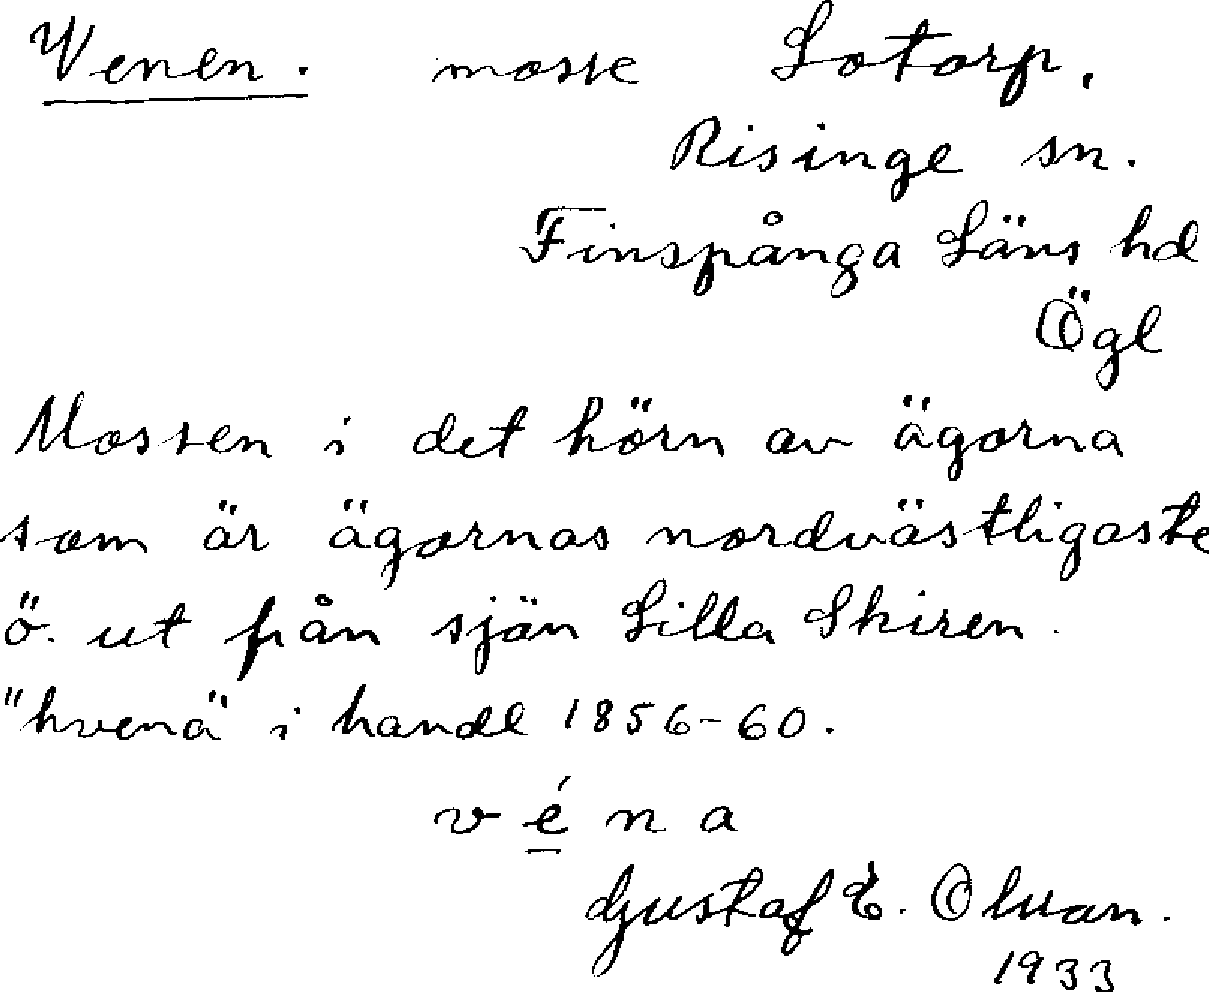 Wenen. mosse Lotorp,
Risinge sn.
Finspånga Läns hd
Ögl
Mossen i det hörn av ägorna
som är ägornas nordvästligaste
ö. ut från sjön Lilla Skiren.
"hvena" i handl 1856-60.
v é n a
Gustaf E. Olsson.
1933